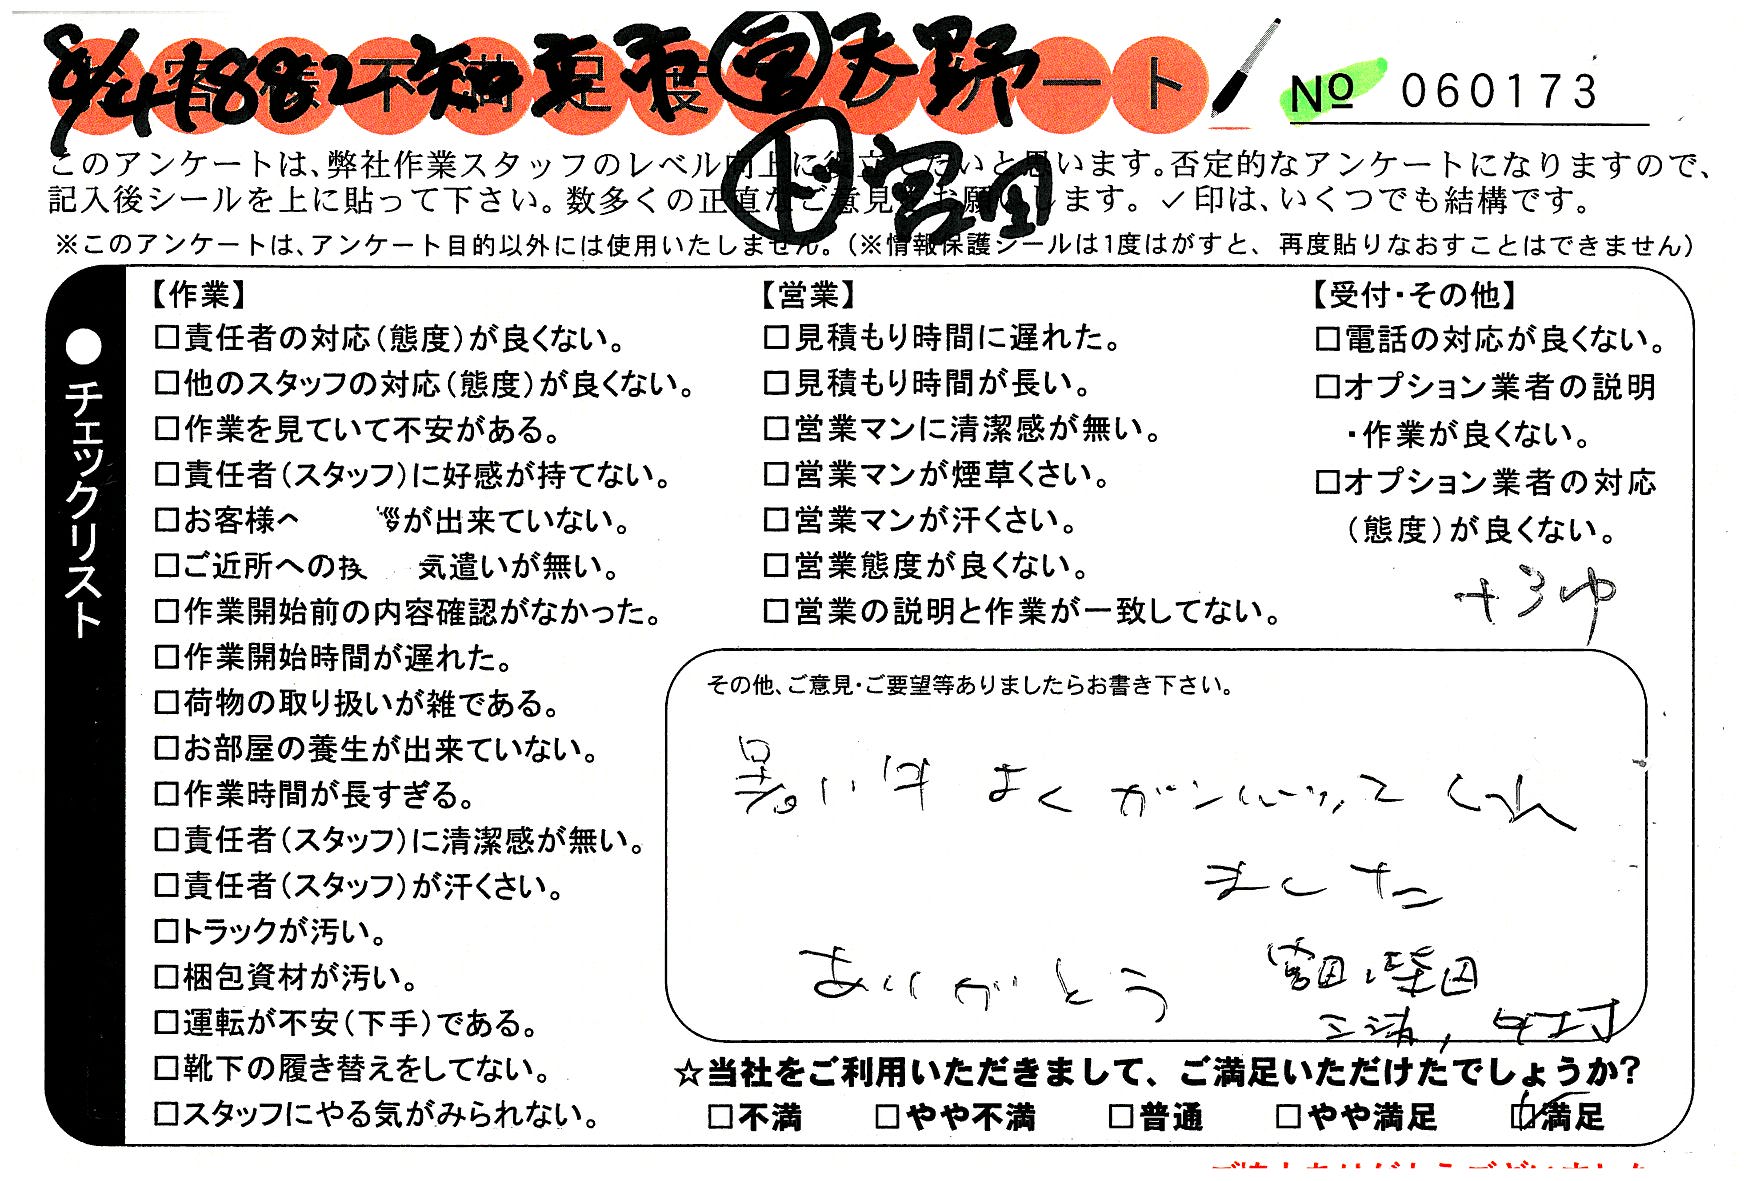 8/4 1882 知立市 営 天野
お客様不満足度アンケート
No 060173
ド 宮田
このアンケートは、弊社作業スタッフのレベル向上に役立てたいと思います。否定的なアンケートになりますので、
記入後シールを上に貼って下さい。数多くの正直なご意見をお願いします。✓印は、いくつでも結構です。
※このアンケートは、アンケート目的以外には使用いたしません。(※情報保護シールは1度はがすと、再度貼りなおすことはできません)
●チェックリスト
【作業】
□責任者の対応(態度)が良くない。
□他のスタッフの対応(態度)が良くない。
□作業を見ていて不安がある。
□責任者(スタッフ)に好感が持てない。
□お客様へ 拶が出来ていない。
□ご近所への挨 気遣いが無い。
□作業開始前の内容確認がなかった。
□作業開始時間が遅れた。
□荷物の取り扱いが雑である。
□お部屋の養生が出来ていない。
□作業時間が長すぎる。
□責任者(スタッフ)に清潔感が無い。
□責任者(スタッフ)が汗くさい。
□トラックが汚い。
□梱包資材が汚い。
□運転が不安(下手)である。
□靴下の履き替えをしてない。
□スタッフにやる気がみられない。
【営業】
□見積もり時間に遅れた。
□見積もり時間が長い。
□営業マンに清潔感が無い。
□営業マンが煙草くさい。
□営業マンが汗くさい。
□営業態度が良くない。
□営業の説明と作業が一致してない。
【受付・その他】
□電話の対応が良くない。
□オプション業者の説明
・作業が良くない。
□オプション業者の対応
(態度)が良くない。
その他、ご意見・ご要望等ありましたらお書き下さい。
暑い中 よく ガンバッて くれ
ました
ありがとう 宮田、柴田
三浦,
☆当社をご利用いただきまして、ご満足いただけたでしょうか?
□不満 □やや不満 □普通 □やや満足 ☑満足